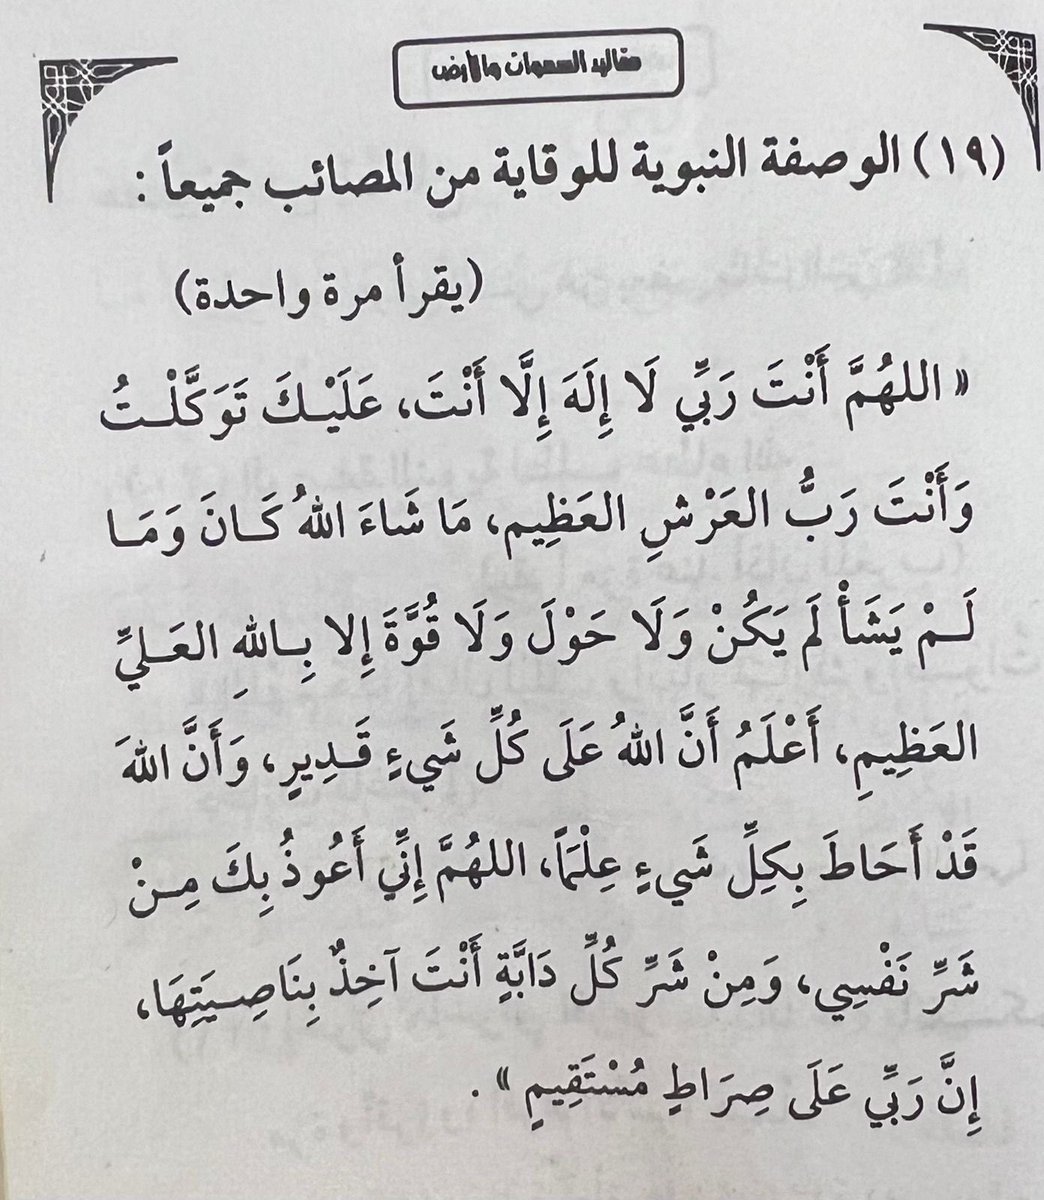 مقاليد السموات والأرض
(١٩) الوصفة النبوية للوقاية من المصائب جميعاً :
(يقرأ مرة واحدة)
« اللهُمَّ أَنْتَ رَبِّي لَا إِلَهَ إِلَّا أَنْتَ، عَلَيْكَ تَوَكَّلْتُ
وَأَنْتَ رَبُّ العَرْشِ العَظِيم، مَا شَاءَ اللهُ كَانَ وَمَا
لَمْ يَشَأْ لَم يَكُنْ وَلَا حَوْلَ وَلَا قُوَّةَ إِلا بِاللهِ العَليِّ
العَظِيمِ، أَعْلَمُ أَنَّ اللهُ عَلَى كُلِّ شَيءٍ قَدِيرٍ، وَأَنَّ اللهَ
قَدْ أَحَاطَ بِكِلِّ شَيءٍ عِلْمَاً، اللهُمَّ إِنِّي أَعُوذُ بِكَ مِنْ
شَرِّ نَفْسِي، وَمِنْ شَرِّ كُلِّ دَابَّةٍ أَنْتَ آخِذٌ بِنَاصِيَتِهَا،
إِنَّ رَبِّي عَلَى صِرَاطٍ مُسْتَقِيمٍ » .